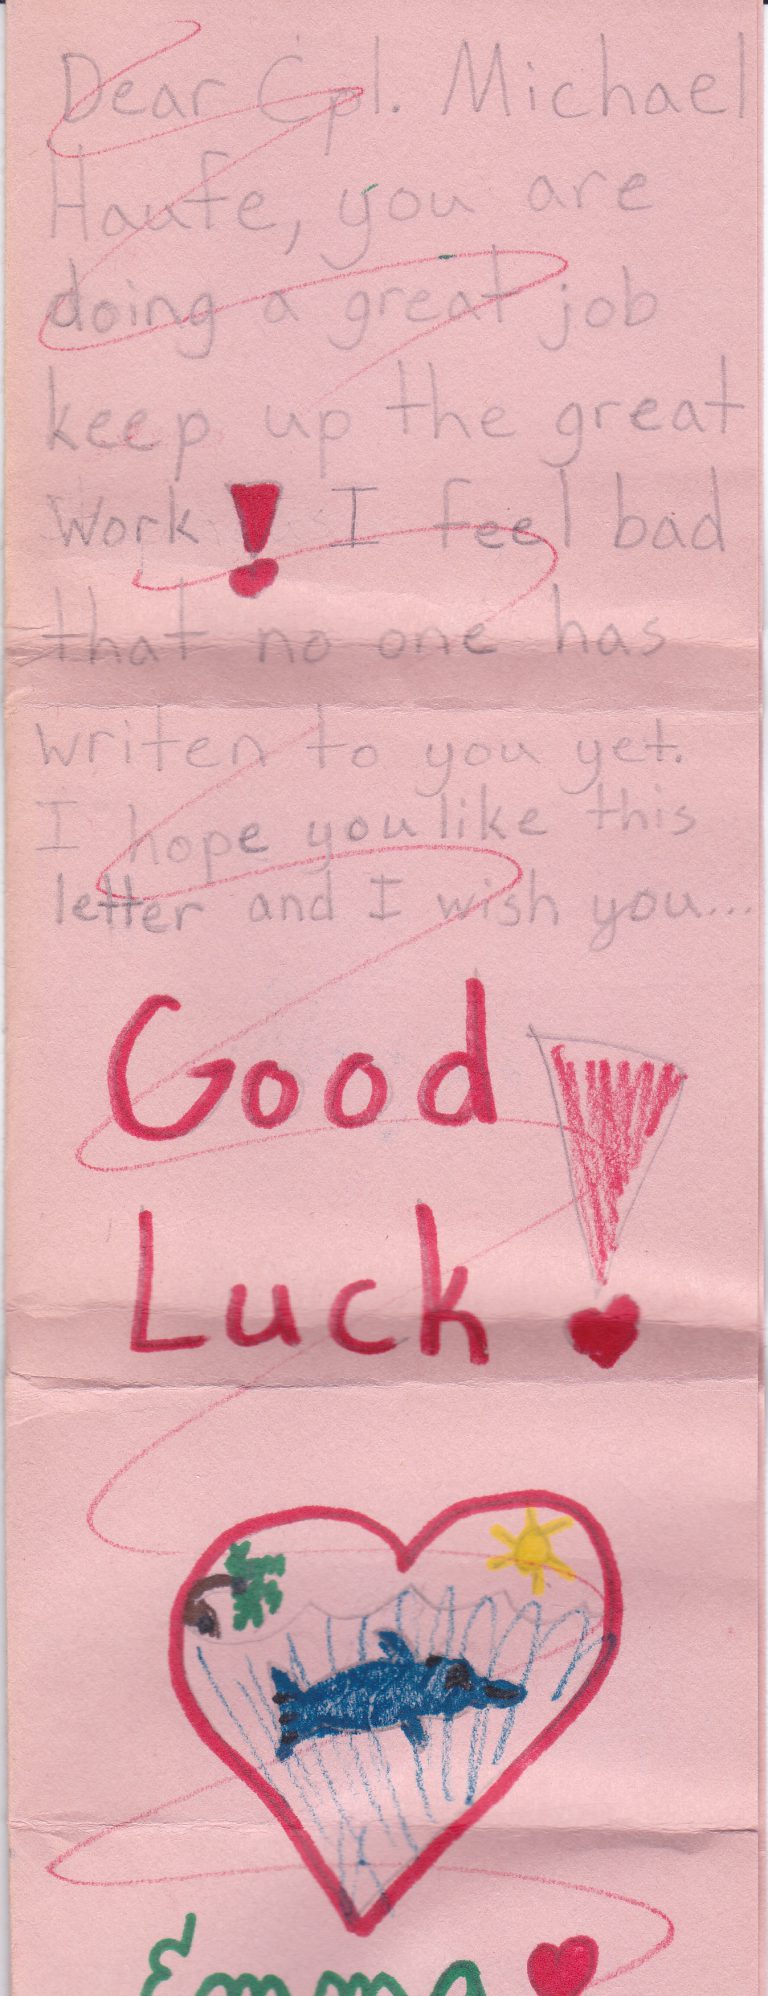 Dear Cpl. Michael
Haufe, you are
doing a great job
keep up the great
work! I feel bad
that no one has
writen to you yet.
I hope you like this
letter and I wish you...
Good
Luck!
Emma